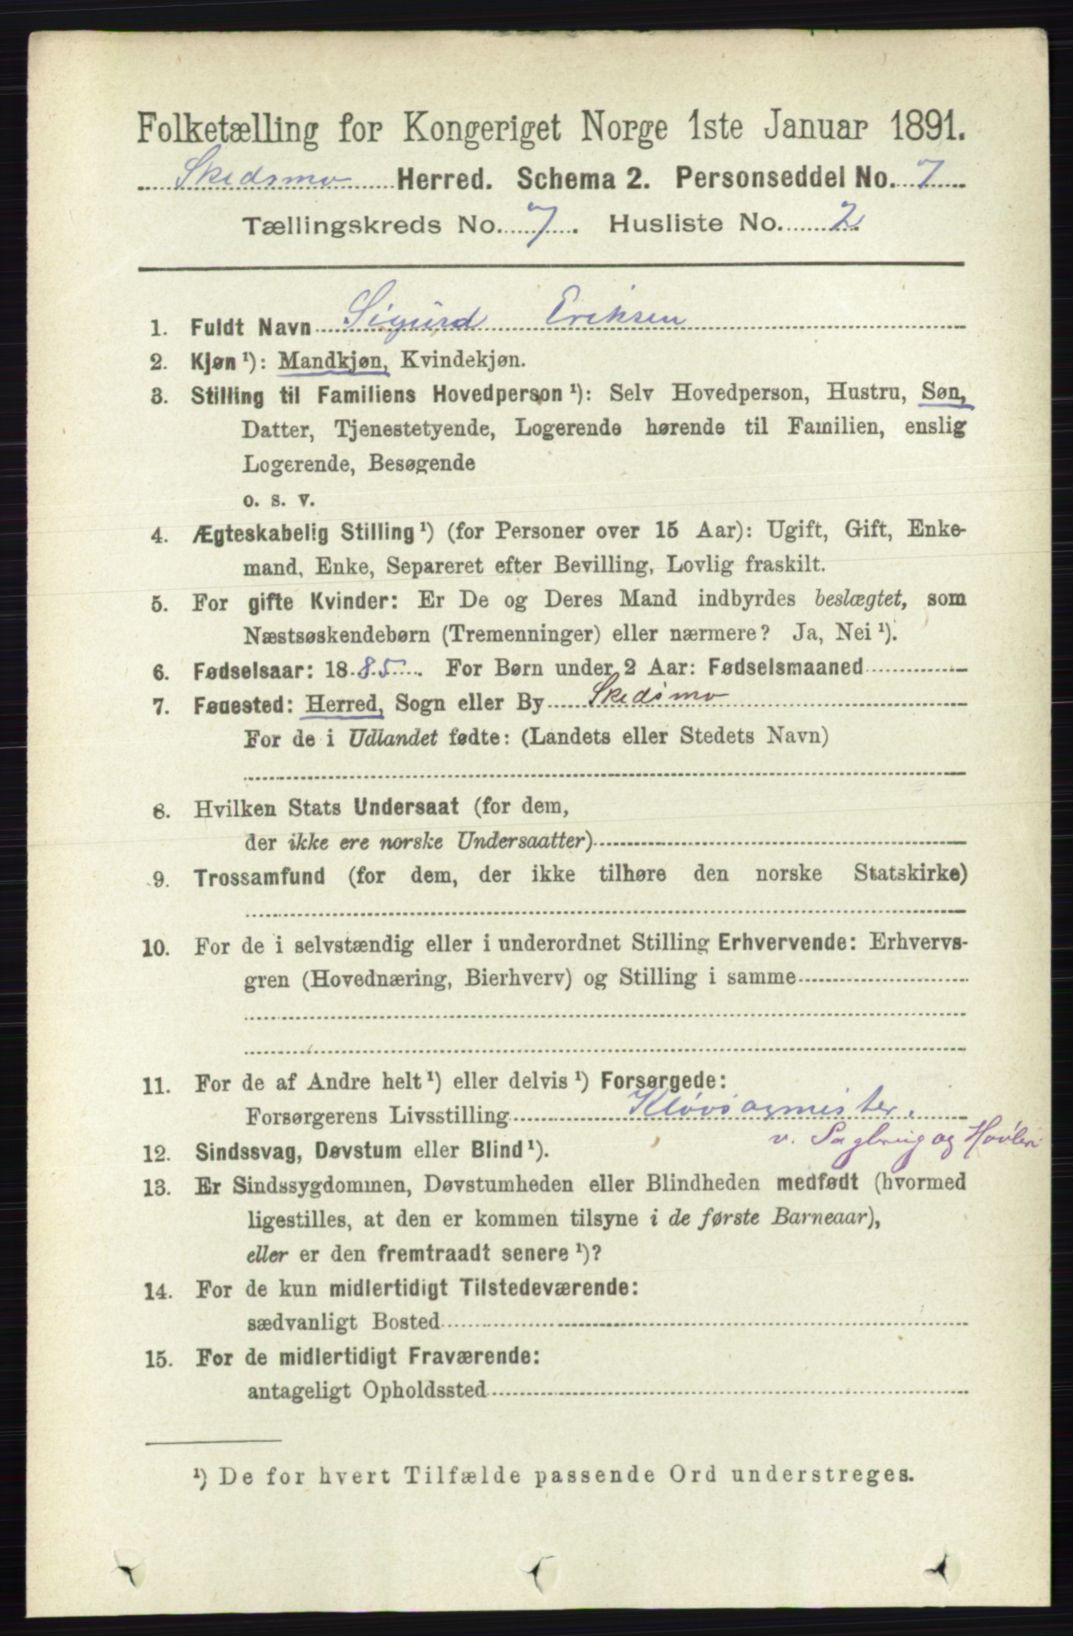 Folketælling for Kongeriget Norge 1ste Januar 1891.
Skedsmo Herred. Schema 2. Personseddel No. 7
Tællingskreds No. 7. Husliste No. 2.
1. Fuldt Navn Sigurd Eriksen
2. Kjøn ¹): Mandkjøn, Kvindekjøn.
3. Stilling til Familiens Hovedperson ¹): Selv Hovedperson, Hustru, Søn,
Datter, Tjenestetyende, Logerende hørende til Familien, enslig
Logerende, Besøgende
o. s. v.
4. Ægteskabelig Stilling ¹) (for Personer over 15 Aar): Ugift, Gift, Enke-
mand, Enke, Separeret efter Bevilling, Lovlig fraskilt.
5. For gifte Kvinder: Er De og Deres Mand indbyrdes beslægtet, som
Næstsøskendebørn (Tremenninger) eller nærmere? Ja, Nei ¹).
6. Fødselsaar: 1885. For Børn under 2 Aar: Fødselsmaaned
7. Fødested: Herred, Sogn eller By Skedsmo
For de i Udlandet fødte: (Landets eller Stedets Navn)
8. Hvilken Stats Undersaat (for dem,
der ikke ere norske Undersaatter)
9. Trossamfund (for dem, der ikke tilhøre den norske Statskirke)
10. For de i selvstændig eller i underordnet Stilling Erhvervende: Erhvervs-
gren (Hovednæring, Bierhverv) og Stilling i samme
11. For de af Andre helt ¹) eller delvis ¹) Forsørgede:
Forsørgerens Livsstilling Kløvsagmister.
v. Sagbrug og Høvleri
12. Sindssvag, Døvstum eller Blind ¹).
13. Er Sindssygdommen, Døvstumheden eller Blindheden medfødt (hvormed
ligestilles, at den er kommen tilsyne i de første Barneaar),
eller er den fremtraadt senere ¹)?
14. For de kun midlertidigt Tilstedeværende:
sædvanligt Bosted
15. For de midlertidigt Fraværende:
antageligt Opholdssted
¹) De for hvert Tilfælde passende Ord understreges.